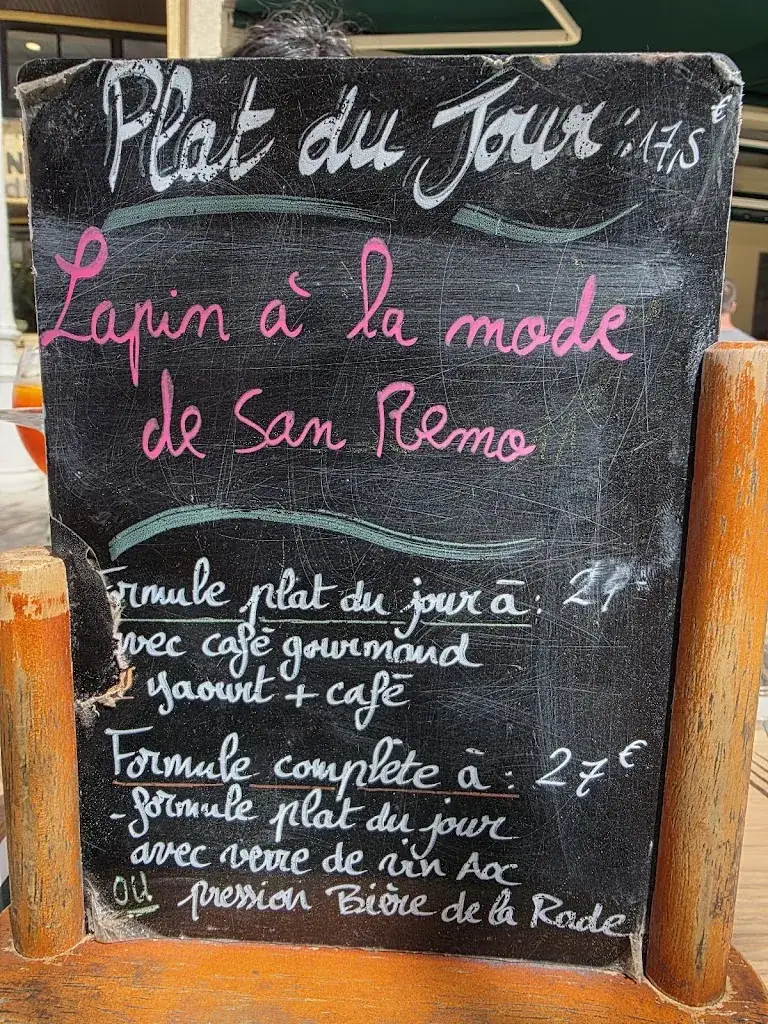 Plat du Jour : 17,5 €
Lapin à la mode
de San Remo
Formule plat du jour à :
avec café gourmand
yaourt + café
Formule complète à : 27 €
- formule plat du jour
avec verre de vin Aoc
OU pression Bière de la Rade